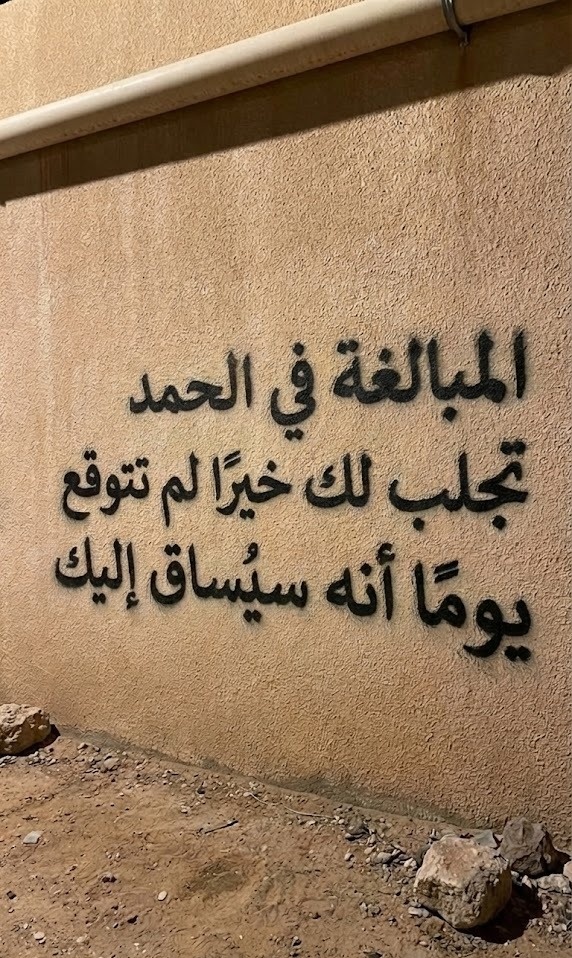 المبالغة في الحمد
تجلب لك خيرًا لم تتوقع
يومًا أنه سيُساق إليك